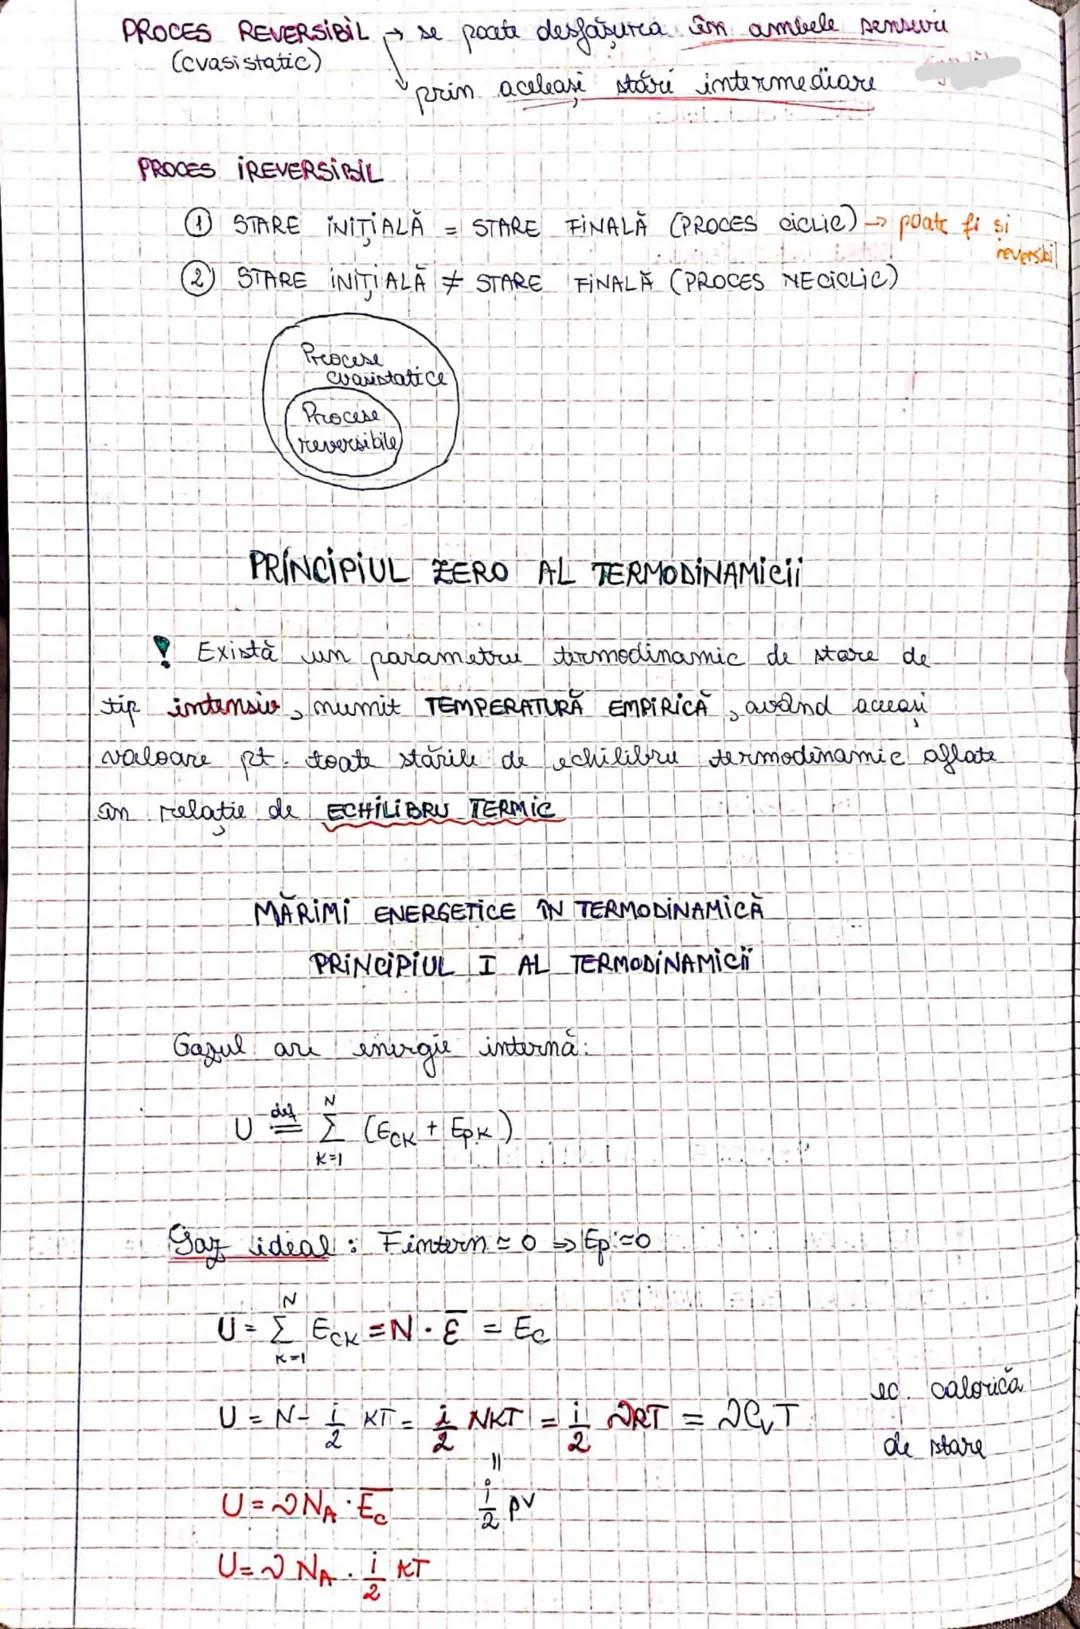 PROCES REVERSIBIL → se poate desfășura în ambele sensuri
(cvasistatic)
prin aceleași stări intermediare
PROCES IREVERSIBIL
① STARE INIȚIALĂ = STARE FINALĂ (PROCES CICLIC) → poate fi și
reversibil
② STARE INIȚIALĂ ≠ STARE FINALĂ (PROCES NECICLIC)
Procese
cvasistatice
Procese
reversibile
PRINCIPIUL ZERO AL TERMODINAMICII
! Există un parametru termodinamic de stare de
tip intensiv, numit TEMPERATURĂ EMPIRICĂ, având aceeași
valoare pt. toate stările de echilibru termodinamic aflate
în relație de ECHILIBRU TERMIC
MĂRIMI ENERGETICE ÎN TERMODINAMICĂ
PRINCIPIUL I AL TERMODINAMICII
Gazul are energie internă:
U def= N Σ K=1 (ECK + EPK)
Gaz ideal: Fintern ≃ 0 ⇒ Ep ≃ 0
U = N Σ K=1 ECK = N · ε̅ = Ec
U = N - i/2 KT = i/2 NKT = i/2 νRT = νCvT
ec. calorică
de stare
= i/2 pV
U = νNA · E̅c
U = νNA · i/2 KT